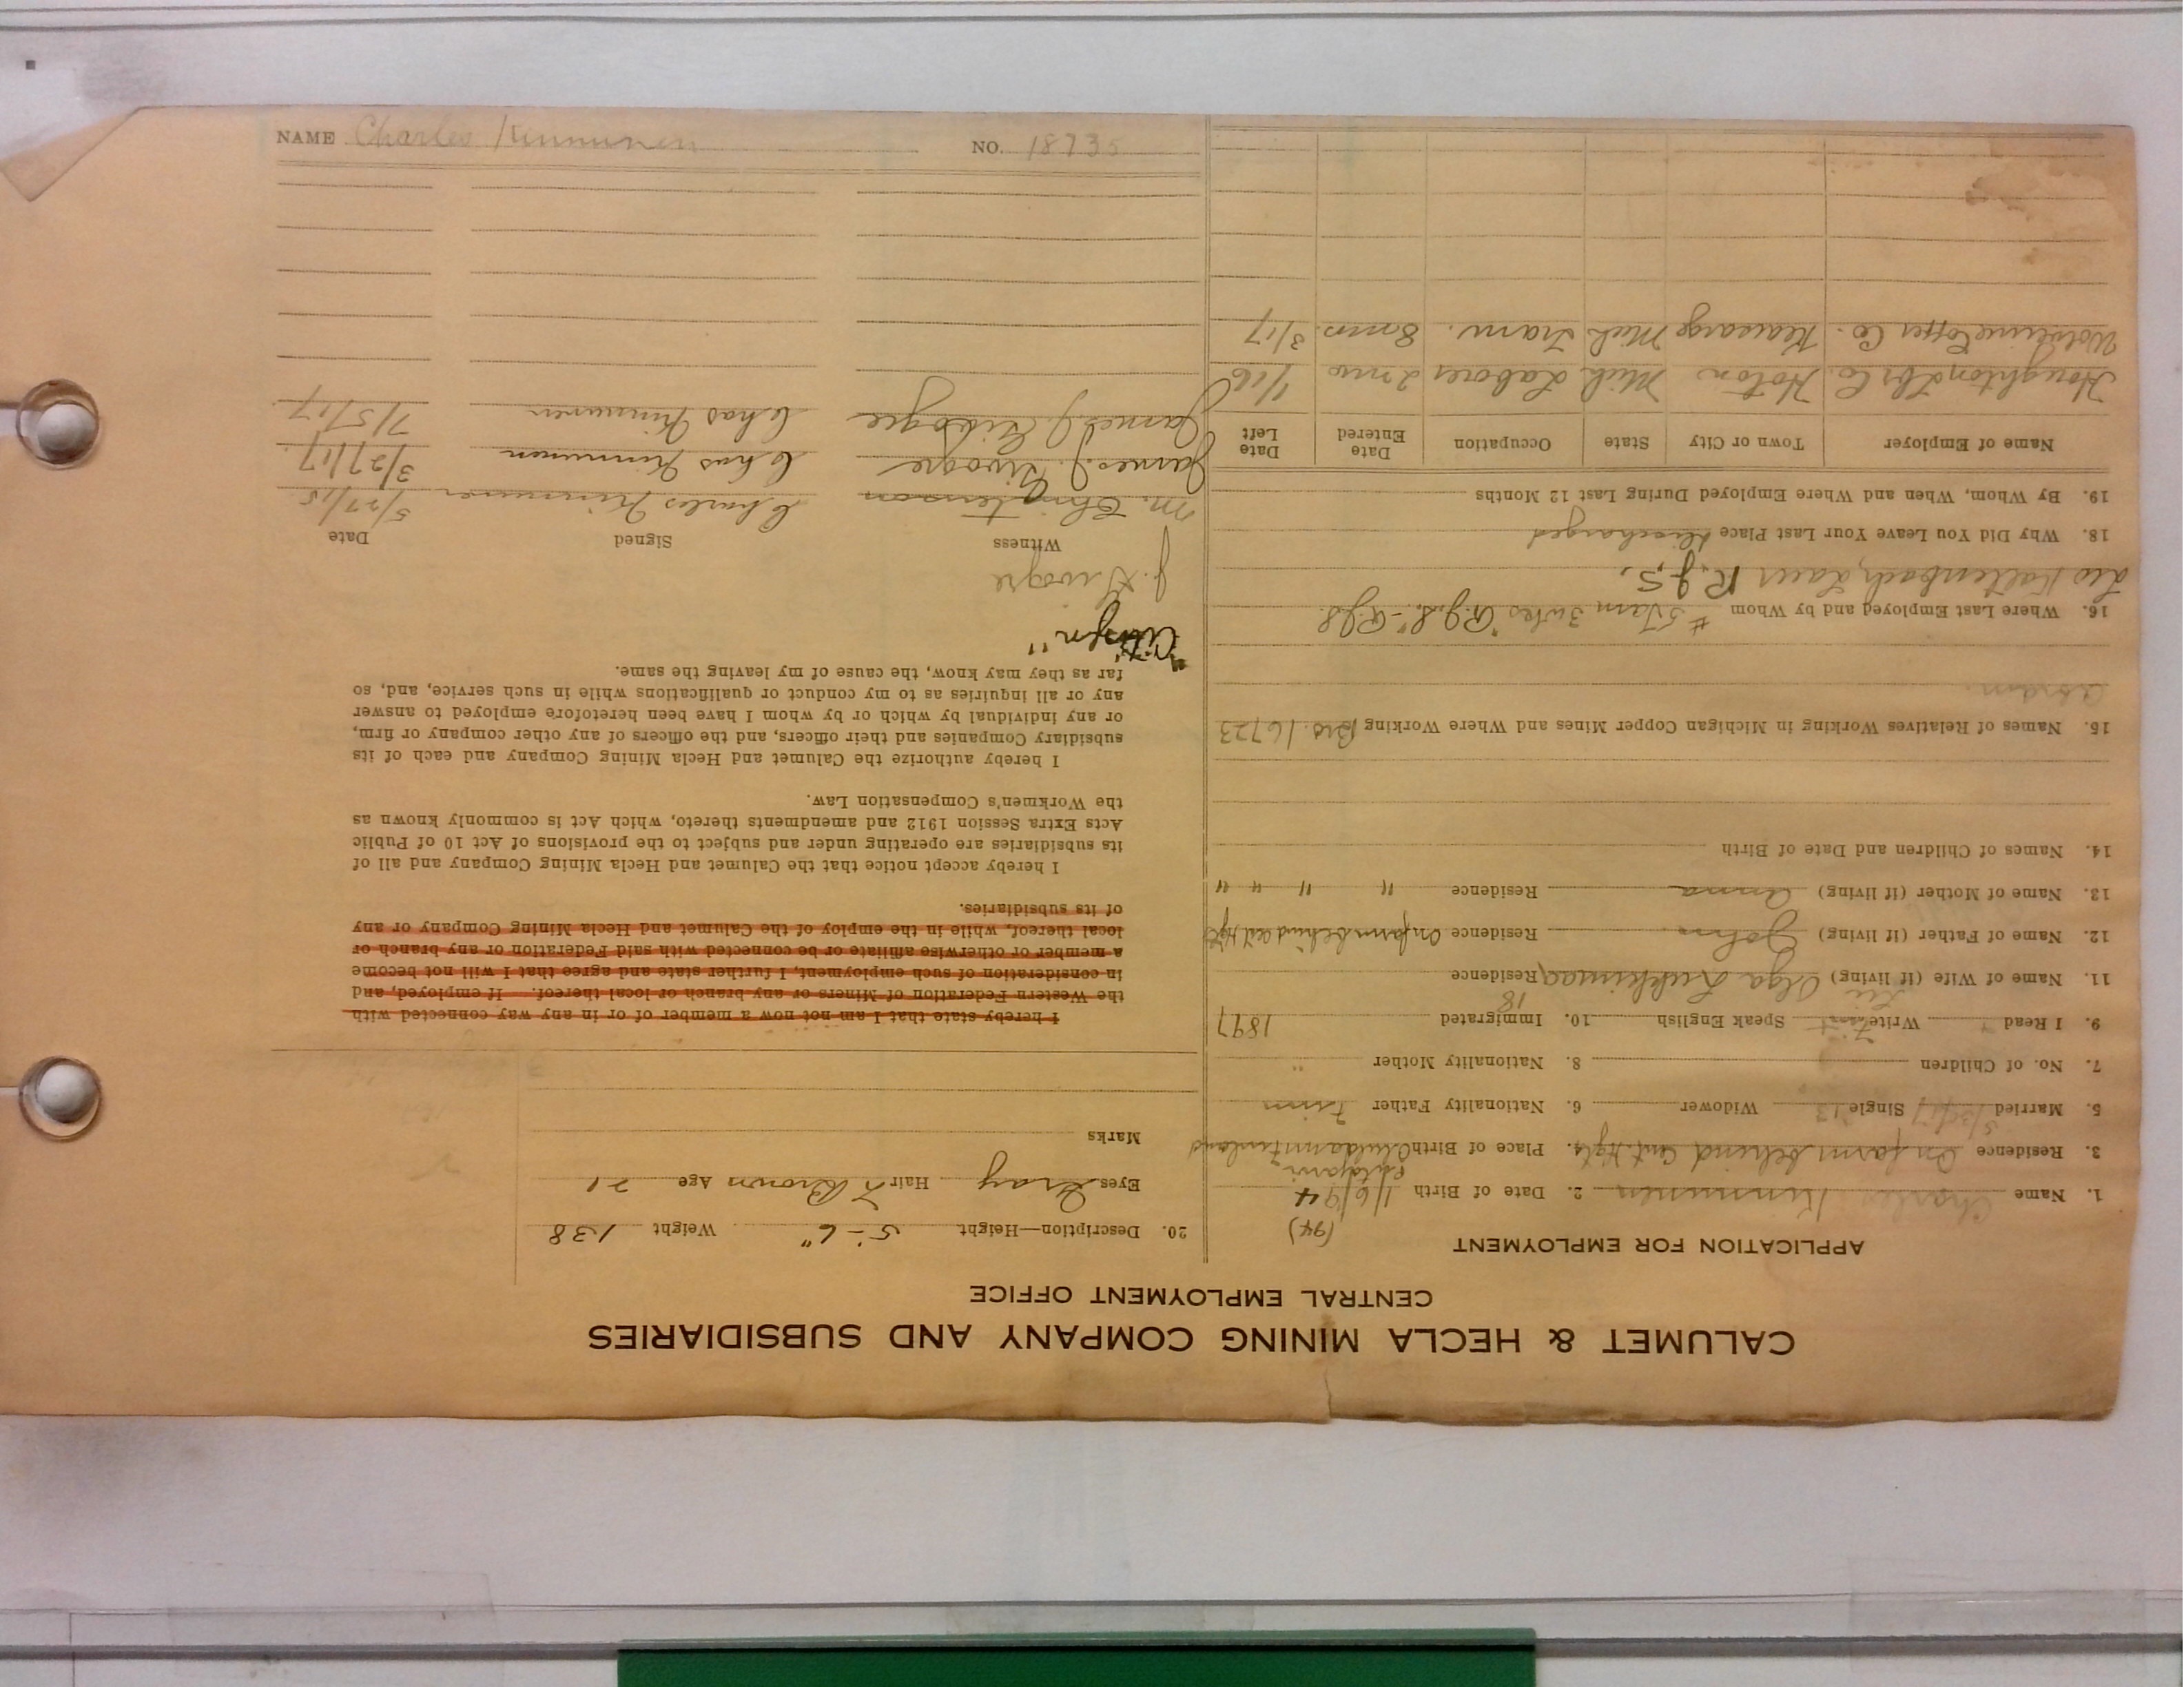 CALUMET & HECLA MINING COMPANY AND SUBSIDIARIES
CENTRAL EMPLOYMENT OFFICE
APPLICATION FOR EMPLOYMENT
(94)
1. Name Charles Kinnunen 2. Date of Birth 1/6/94
3. Residence On farm behind Cent. Hgts 4. Place of Birth Finland
5. Married Single Widower 6. Nationality Father Finn
7. No. of Children 8. Nationality Mother "
9. I Read Write Speak English 10. Immigrated 1897
18
11. Name of Wife (if living) Olga Residence
12. Name of Father (if living) John Residence On farm behind Cent. Hgts
13. Name of Mother (if living) Anna Residence " " " "
14. Names of Children and Date of Birth
15. Names of Relatives Working in Michigan Copper Mines and Where Working Bro. 16723
Abram.
16. Where Last Employed and by Whom #5 Tam 3 wks "R.J.S." - R.J.S
Leo Kaltenbach, Laur R.J.S.
18. Why Did You Leave Your Last Place discharged
19. By Whom, When and Where Employed During Last 12 Months
Name of Employer Town or City State Occupation Date Entered Date Left
Houghton Lbr Co. Hoton Mich Laborer 2 mos 1/16
Wolverine Copper Co. Keasarge Mich Tram. 8 mos. 3/17
20. Description—Height 5'-6" Weight 138
Eyes Gray Hair L Brown Age 21
Marks
I hereby state that I am not now a member of or in any way connected with
the Western Federation of Miners or any branch or local thereof. If employed, and
in consideration of such employment, I further state and agree that I will not become
a member or otherwise affiliate or be connected with said Federation or any branch or
local thereof, while in the employ of the Calumet and Hecla Mining Company or any
of its subsidiaries.
I hereby accept notice that the Calumet and Hecla Mining Company and all of
its subsidiaries are operating under and subject to the provisions of Act 10 of Public
Acts Extra Session 1912 and amendments thereto, which Act is commonly known as
the Workmen's Compensation Law.
I hereby authorize the Calumet and Hecla Mining Company and each of its
subsidiary Companies and their officers, and the officers of any other company or firm,
or any individual by which or by whom I have been heretofore employed to answer
any or all inquiries as to my conduct or qualifications while in such service, and, so
far as they may know, the cause of my leaving the same.
"Citizen"
Witness Signed Date
M. Christenson Charles Kinnunen 5/27/15
James J. Chas Kinnunen 3/27/17
James J. Chas Kinnunen 7/5/17
NAME Charles Kinnunen NO. 18735